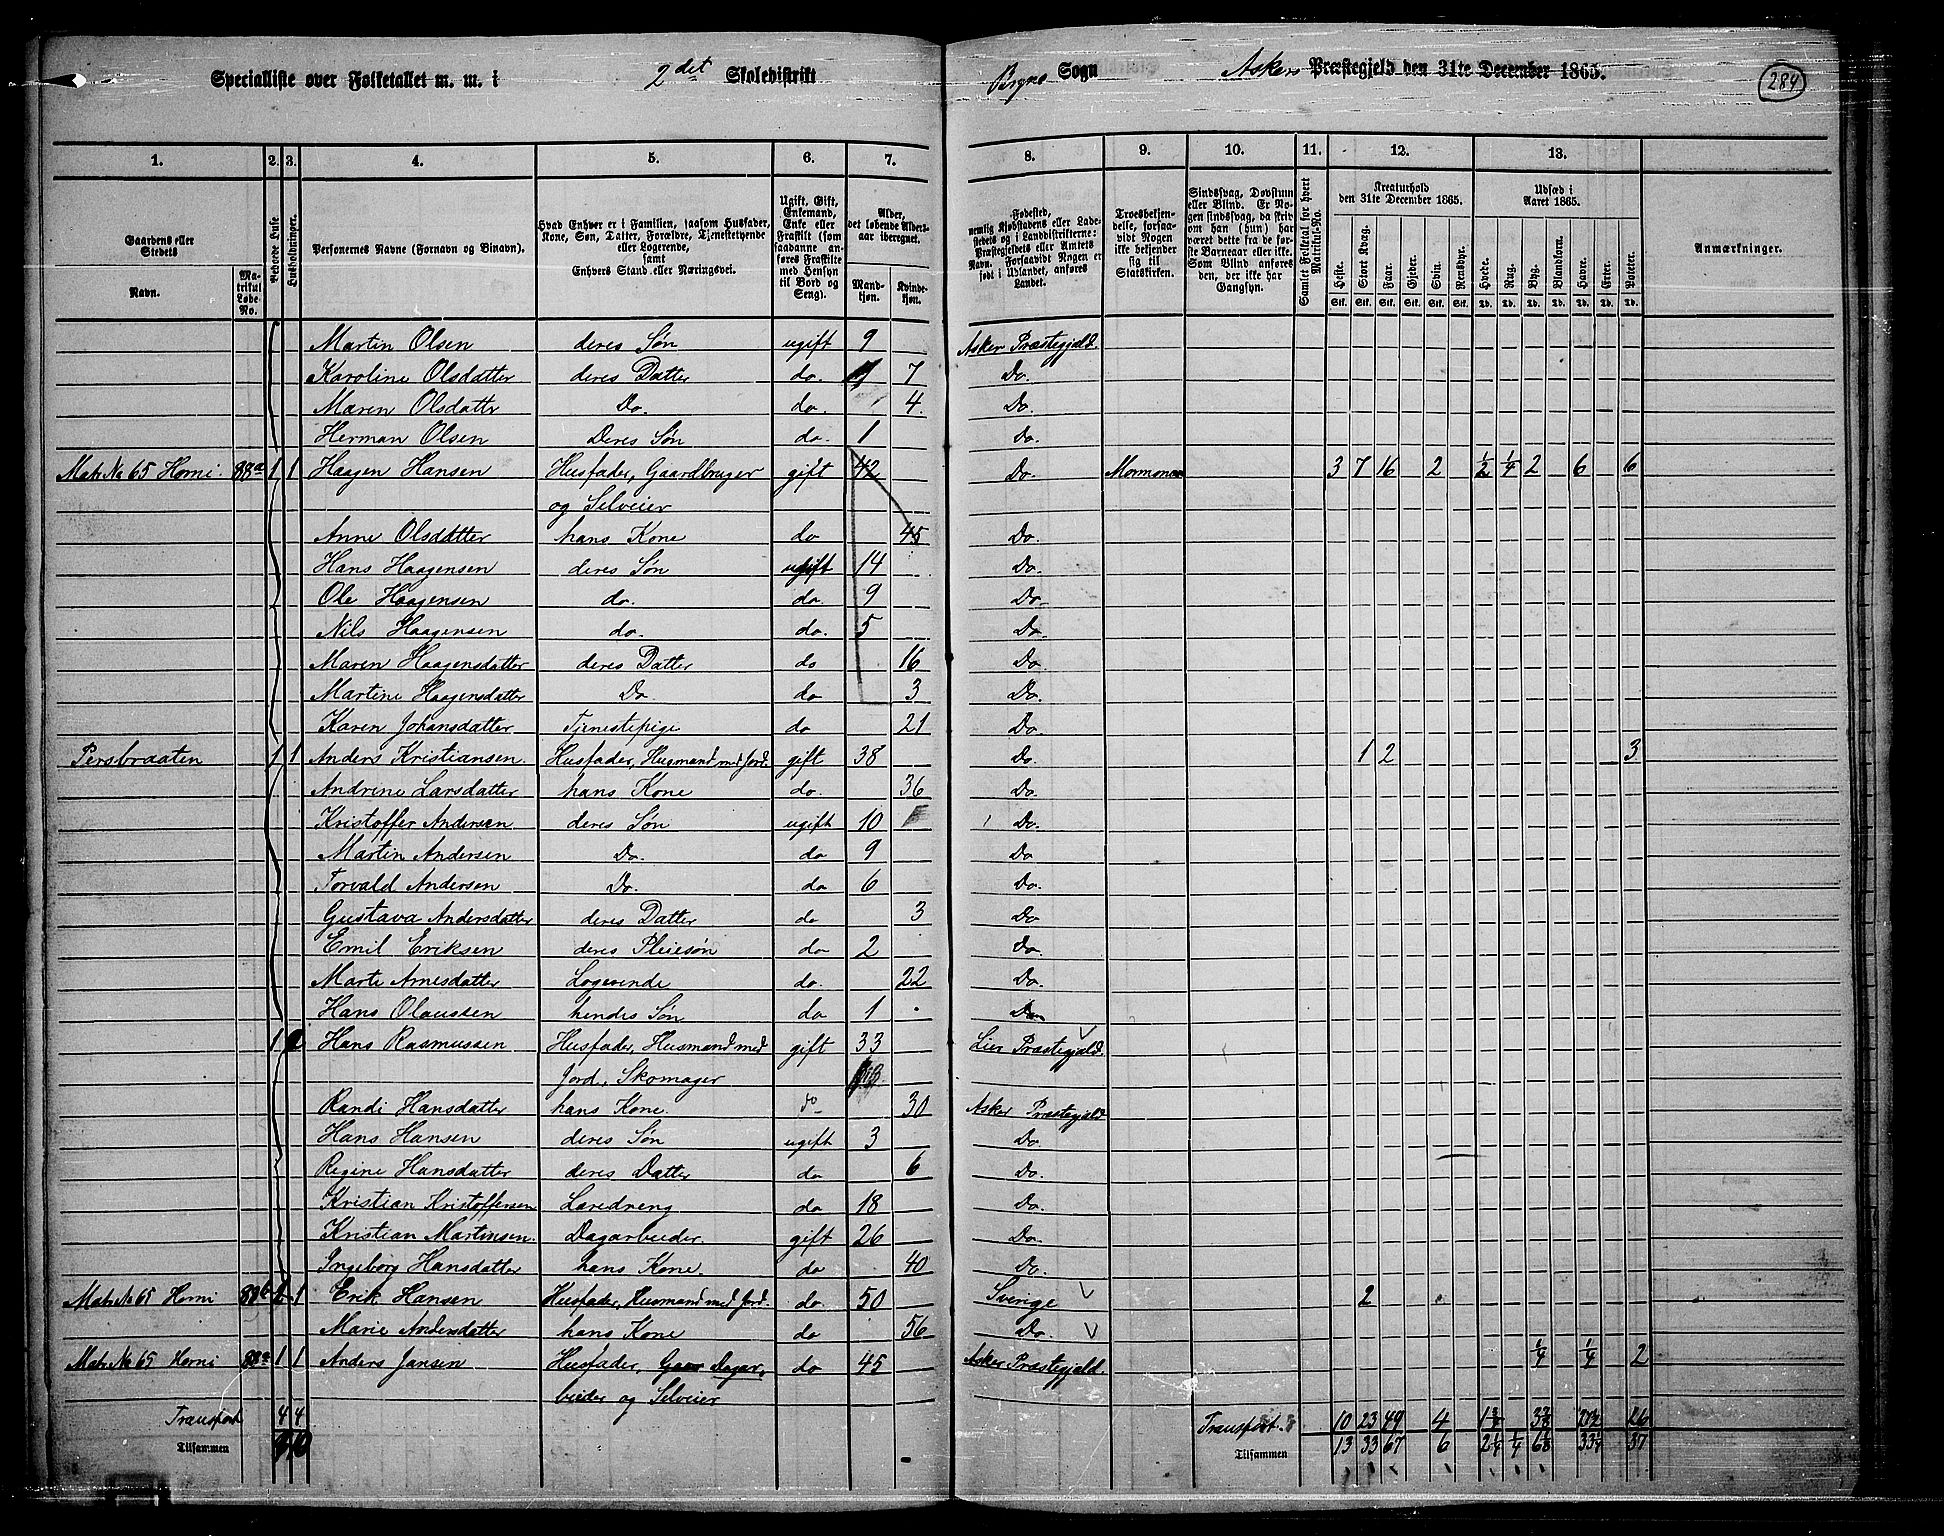 Specialliste over Folketallet m. m. i 2det Skoledistrikt Sogn Askers Præstegjeld den 31te December 1865. 284
1. 2. 3. 4. 5. 6. 7. 8. 9. 10. 11. 12. 13.
Gaardens eller Stedets Navn. Matrikul Løbe-No. Beboede Huse Husholdninger.
Personernes Navne (Fornavn og Binavn).
Hvad Enhver er i Familien, saasom Husfader, Kone, Søn, Datter, Forældre, Tjenestetyende eller Logerende, samt Enhvers Stand eller Næringsvei.
Ugift, Gift, Enkemand, Enke eller Fraskilt (som saadanne anføres Fraskilte med Hensyn til Bord og Seng).
Alder, det løbende Aldersaar iberegnet. Mandkjøn. Kvindekjøn.
Fødested, nemlig Kjøbstadens eller Ladestedets og i Landdistrikterne: Præstegjeldets eller Amtets Navn. Forsaavidt Nogen er født i Udlandet, anføres Landet.
Troesbekjendelse, forsaavidt Nogen ikke bekjender sig til Statskirken.
Sindssvag, Døvstum eller Blind. Er Nogen sindssvag, da skriv om han (hun) har været dette fra de første Barneaar eller ikke. Som Blind anføres den, der ikke har Gangsyn.
Samlet Folketal for hvert Matrikul-No.
Kreaturhold den 31te December 1865. Heste. Stort Kvæg. Faar. Gjeder. Svin. Rensdyr.
Udsæd i Aaret 1865. Hvede. Rug. Byg. Blandkorn. Havre. Erter. Poteter.
Anmærkninger.
Martin Olsen deres Søn ugift 9 Asker Præstegjeld.
Karoline Olsdatter deres Datter do. 7 Do.
Maren Olsdattr Do. do. 4. Do.
Herman Olsen Deres Søn do. 1 Do.
Matr No 65 Horni. 88a 1 1 Haagen Hansen Husfader, Gaardbruger gift 42 Do. Mormoner 3 7 16 2 1/2 1/4 2 6 6
og Selveier
Anne Olsdatter hans Kone do 45 Do.
Hans Haagensen deres Søn ugift 14 Do.
Ole Haagensen do. do. 9 Do.
Nils Haagensen do. do. 5 Do.
Maren Haagensdatter deres Datter do 16 Do.
Martine Haagensdatter Do do 3 Do.
Karen Johansdatter Tjenestepige do 21 Do.
Persbraaten 1 1 Anders Kristiansen Husfader, Husmand med Jord. gift 38 Do. 1 2 3
Andrine Larsdatter hans Kone do. 36 Do.
Kristoffer Andersen. deres Søn ugift 10 Do.
Martin Andersen Do. do 9 Do
Torvald Andersen Do. do 6 Do.
Gustava Andersdatter deres Datter do 3 Do
Emil Eriksen deres Pleiesøn do 2 Do
Marte Arnesdatter Logerende do. 22 Do.
Hans Olaussen hendes Søn do 1 Do
1 2 Hans Rasmussen Husfader, Husmand med gift 33 Lier Præstegjeld.
Jord, Skomager
Randi Hansdatter hans Kone. do 30 Asker Præstegjeld
Hans Hansen deres Søn ugift 3 Do.
Regine Hansdatter deres Datter do 6 Do.
Kristian Kristoffersen Læredreng do 18 Do.
Kristian Martinsen. Dagarbeider. gift 26 Do.
Ingeborg Hansdatter hans Kone. do 40 Do.
Matr No 65 Horni 1 Erik Hansen Husfader, Husmand med Jord. do 50 Sverige 2
Marie Andersdatter hans Kone do 56 Do.
Matr No 65 Horni 1 1 Anders Jansen Husfader, Dagar- do 45 Asker Præstegjeld. 1/4 1/4 2
beider og Selveier
Transport 4 4 Transport. 10 23 49 4 26
Tilsammen Tilsammen 13 33 67 6 2 1/4 1/4 37